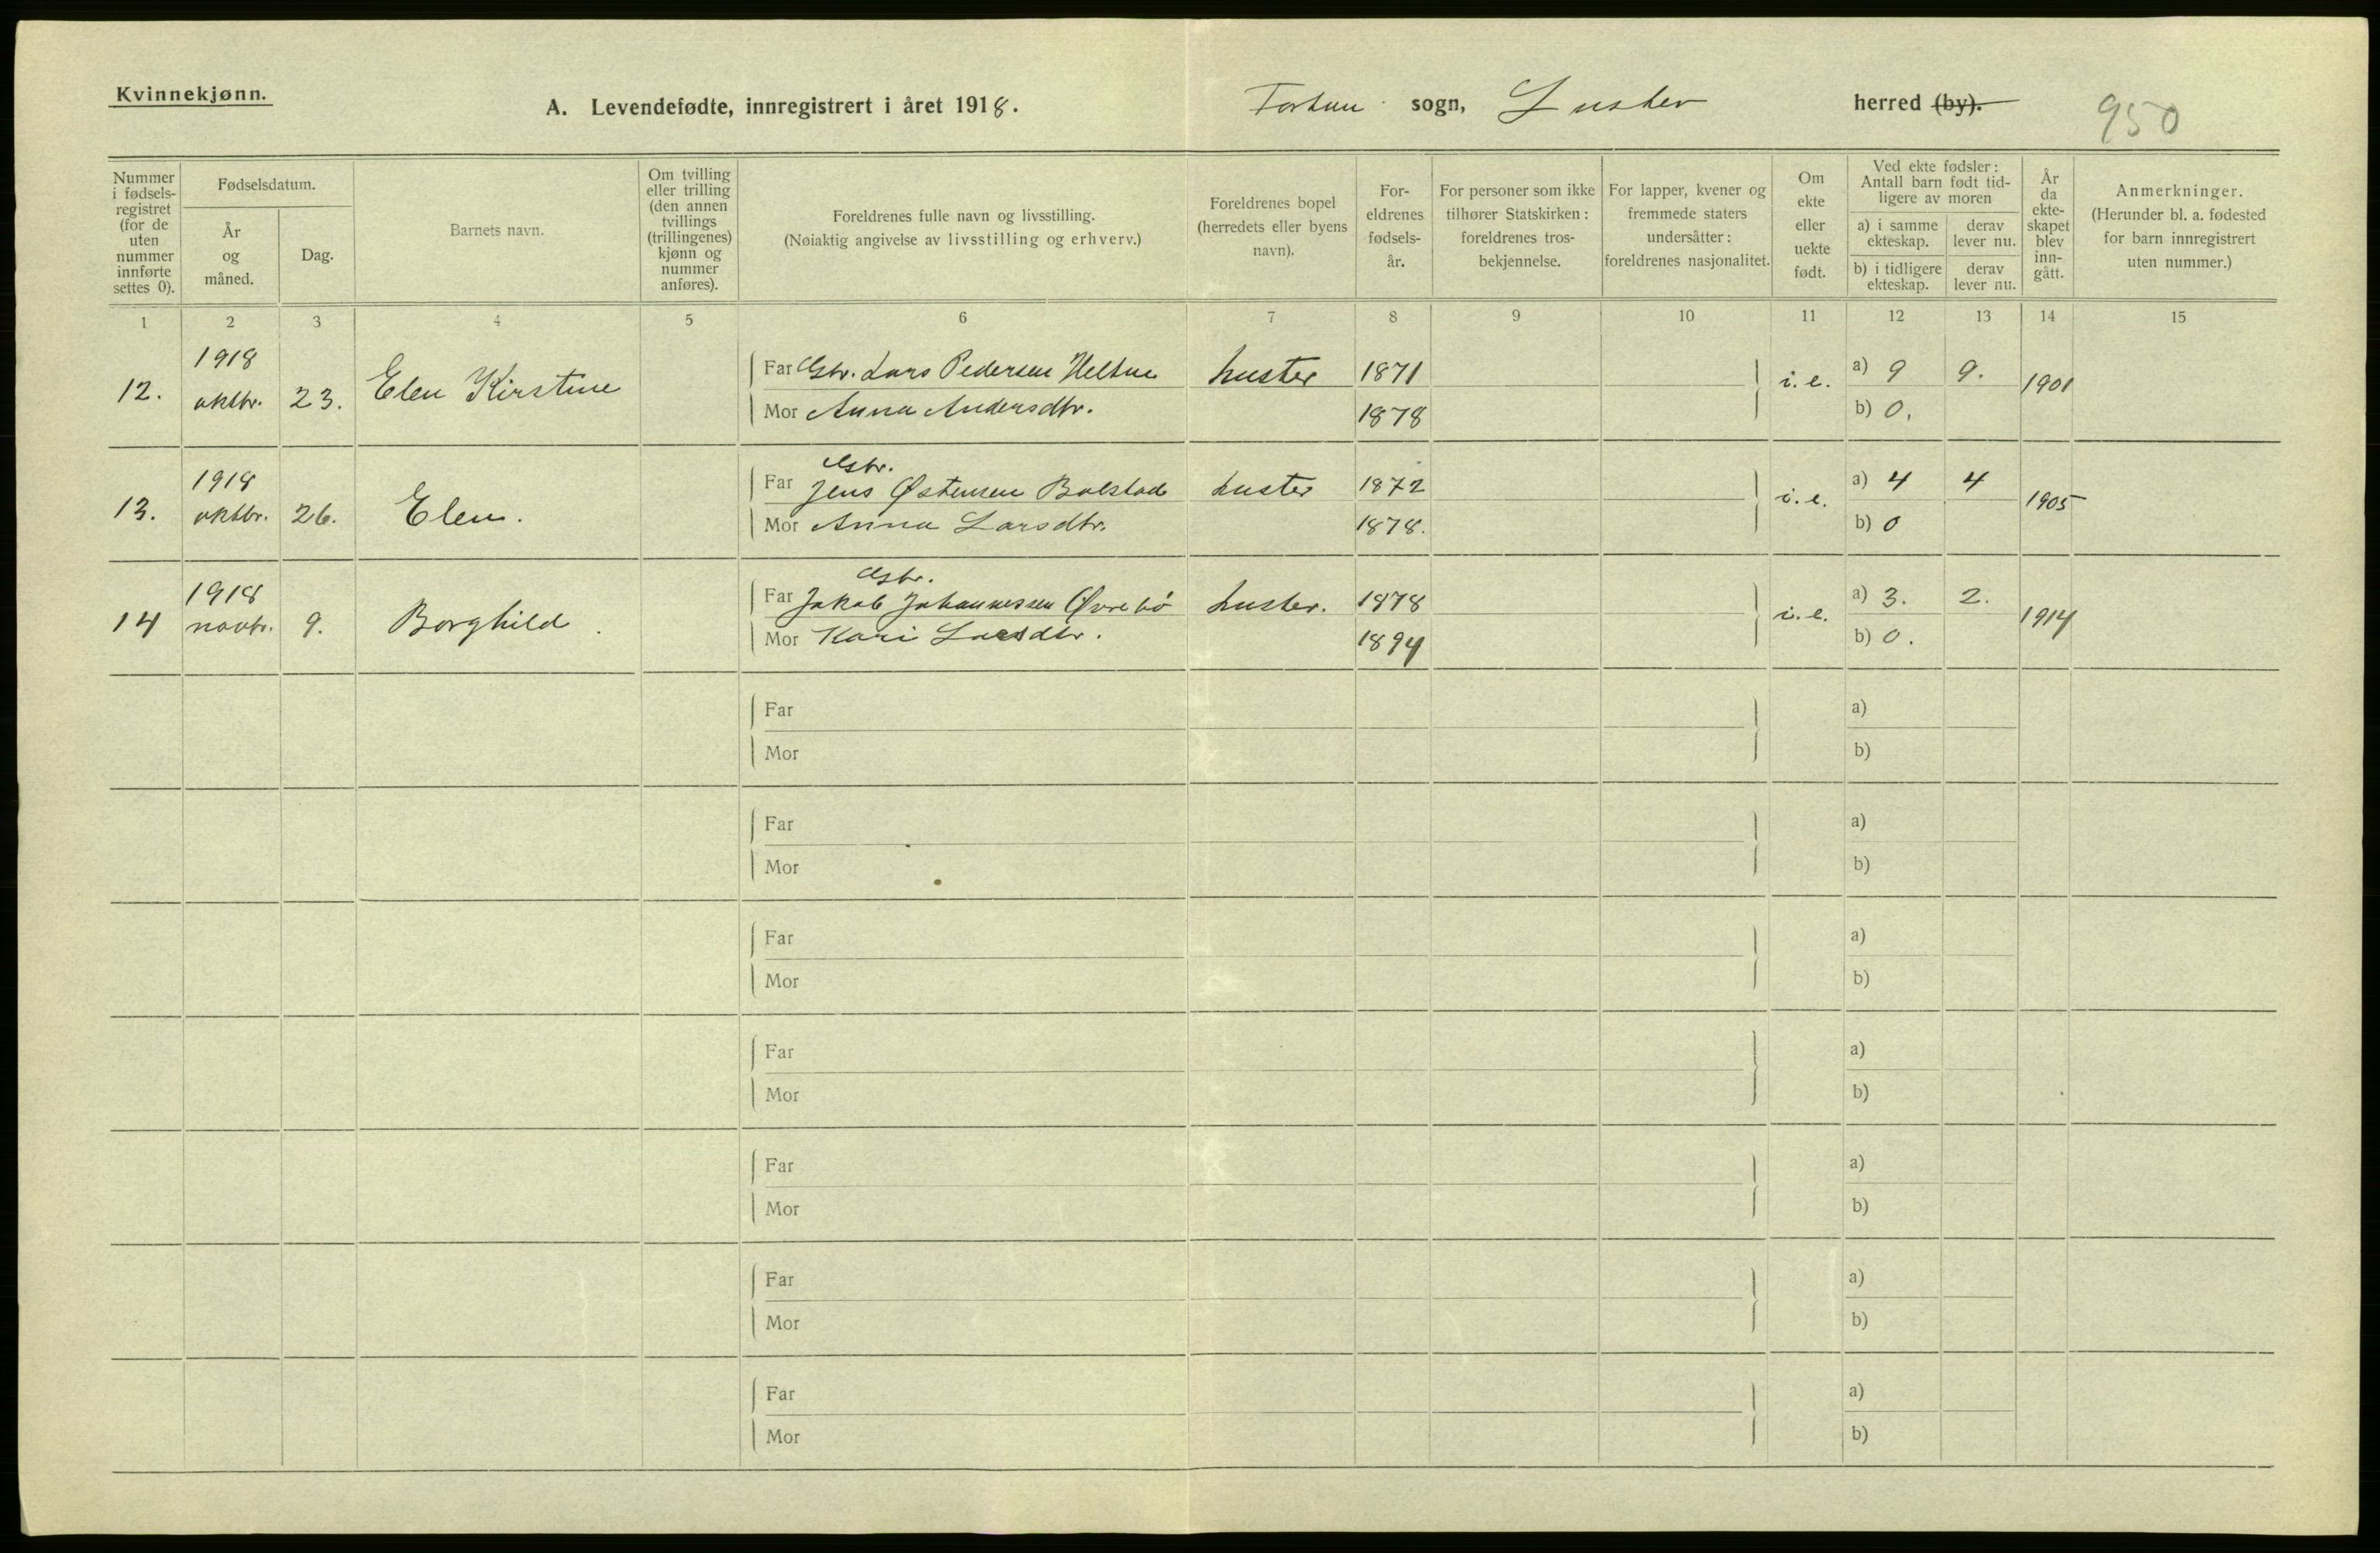 Kvinnekjønn.
A. Levendefødte, innregistrert i året 1918. Fortun sogn, Luster herred (by).
950
Nummer i fødsels-registret (for de uten nummer innførte settes 0).
Fødselsdatum.
År og måned.
Dag.
Barnets navn.
Om tvilling eller trilling (den annen tvillings (trillingenes) kjønn og nummer anføres).
Foreldrenes fulle navn og livsstilling.
(Nøiaktig angivelse av livsstilling og erhverv.)
Foreldrenes bopel (herredets eller byens navn).
For-eldrenes fødsels-år.
For personer som ikke tilhører Statskirken: foreldrenes tros-bekjennelse.
For lapper, kvener og fremmede staters undersåtter: foreldrenes nasjonalitet.
Om ekte eller uekte født.
Ved ekte fødsler: Antall barn født tid-ligere av moren
a) i samme ekteskap.
derav lever nu.
b) i tidligere ekteskap.
derav lever nu.
År da ekte-skapet blev inn-gått.
Anmerkninger.
(Herunder bl. a. fødested for barn innregistrert uten nummer.)
1 2 3 4 5 6 7 8 9 10 11 12 13 14 15
12. 1918 oktbr. 23. Elen Kirstine Far Gbr. Lars Pedersen Heltne Luster 1871 i. e. a) 9 9. 1901
Mor Anna Andersdtr. 1878 b) 0.
13. 1918 oktbr. 26. Elen. Far Gbr. Jens Østensen Bolstad Luster 1872 i. e. a) 4 4 1905
Mor Anna Larsdtr. 1878. b) 0
14 1918 novbr. 9. Borghild. Far Gbr. Jakob Johannessen Øvrebø Luster. 1878 i. e. a) 3. 2. 1914
Mor Kari Larsdtr. 1894 b) 0.
Far a)
Mor b)
Far a)
Mor b)
Far a)
Mor b)
Far a)
Mor b)
Far a)
Mor b)
Far a)
Mor b)
Far a)
Mor b)